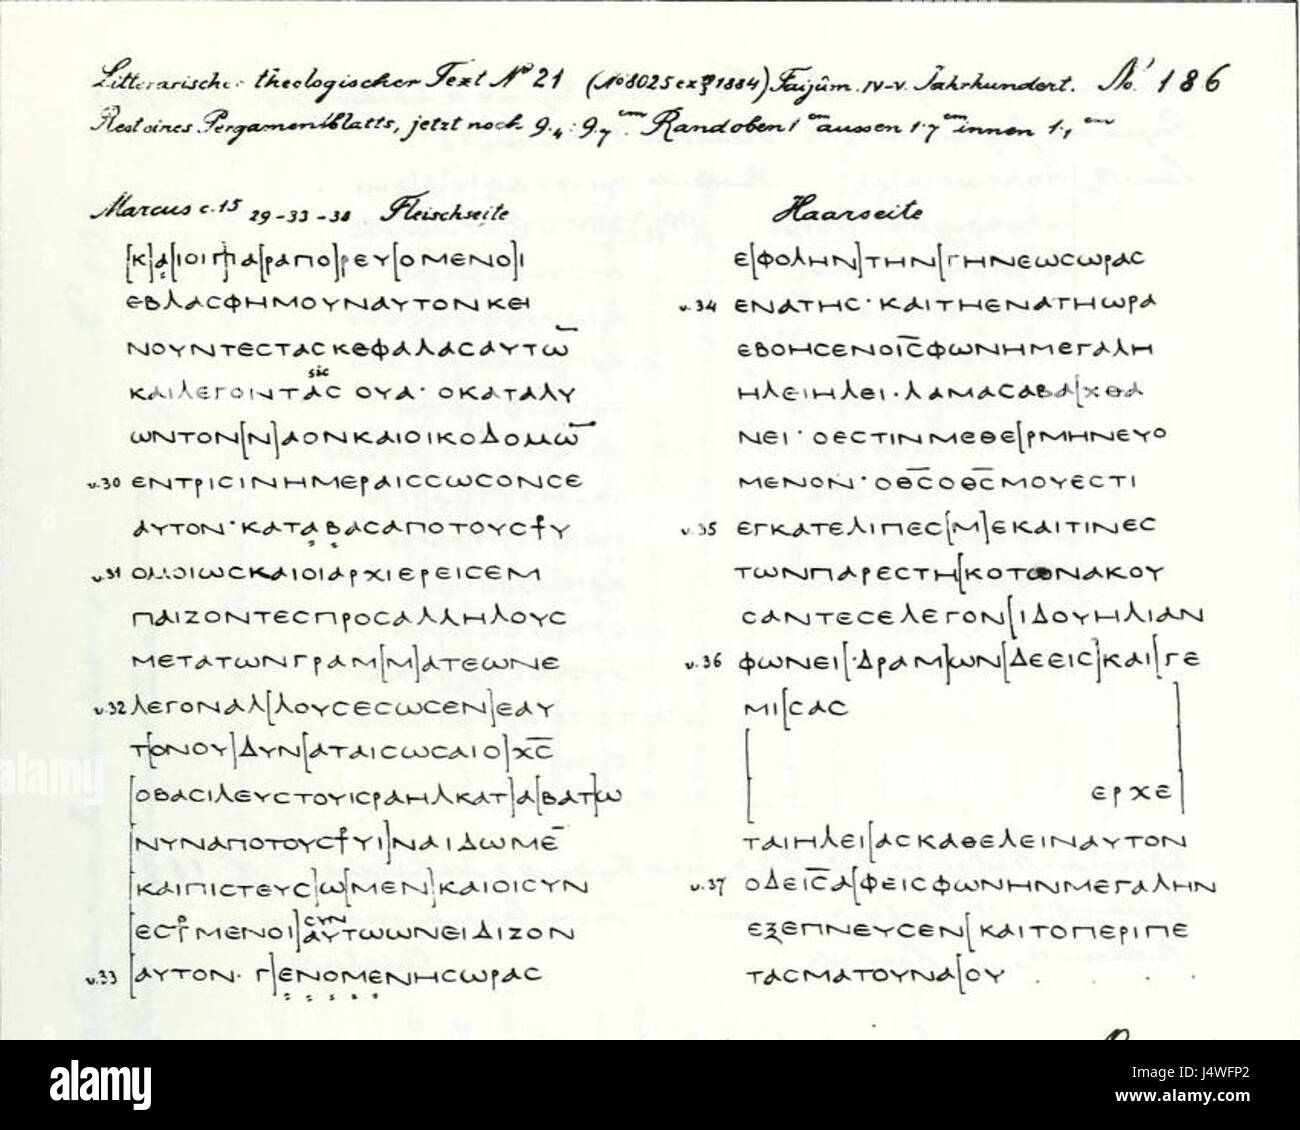 Litterarischer theologischer Text No 21 (No 8025 ex P 1884) Faijûm. IV-V. Jahrhundert. No. 186
Rest eines Pergamentblatts, jetzt noch 9.4 : 9.7 cm. Rand oben 1 cm aussen 1.7 cm innen 1.1 cm
Marcus c. 15 29-33-38 Fleischseite
[Κ]Α[ΙΟΙΠ]Α[ΡΑΠΟ]ΡΕΥ[ΟΜΕΝΟ]Ι
ΕΒΛΑϹΦΗΜΟΥΝΑΥΤΟΝΚΕΙ
ΝΟΥΝΤΕϹΤΑϹΚΕΦΑΛΑϹΑΥΤΩ̅
sic
ΚΑΙΛΕΓΟΙΝΤΑϹ ΟΥΑ· ΟΚΑΤΑΛΥ
ΩΝΤΟΝ[Ν]ΑΟΝΚΑΙΟΙΚΟΔΟΜΩ̅
v.30 ΕΝΤΡΙϹΙΝΗΜΕΡΑΙϹϹΩϹΟΝϹΕ
ΑΥΤΟΝ·ΚΑΤΑΒΑϹΑΠΟΤΟΥϹ⳨Υ
v.31 ΟΜΟΙΩϹΚΑΙΟΙΑΡΧΙΕΡΕΙϹΕΜ
ΠΑΙΖΟΝΤΕϹΠΡΟϹΑΛΛΗΛΟΥϹ
ΜΕΤΑΤΩΝΓΡΑΜ[Μ]ΑΤΕΩΝΕ
v.32 ΛΕΓΟΝΑΛ[ΛΟΥϹΕϹΩϹΕΝ]ΕΑΥ
Τ[ΟΝΟΥ]ΔΥΝ[ΑΤΑΙϹΩϹΑΙΟ]Χ̅Ϲ̅
[ΟΒΑϹΙΛΕΥϹΤΟΥΙϹΡΑΗΛΚΑΤ]Α[ΒΑΤ]Ω
[ΝΥΝΑΠΟΤΟΥϹ⳨ΥΙ]ΝΑΙΔΩΜΕ̅
[ΚΑΙΠΙϹΤΕΥϹ]Ω[ΜΕΝ]ΚΑΙΟΙϹΥΝ
ϹΥΝ
[ΕϹ⳨ΜΕΝΟΙ]ΑΥΤΩΩΝΕΙΔΙΖΟΝ
v.33 [ΑΥΤΟΝ· Γ]ΕΝΟΜΕΝΗϹΩΡΑϹ
Haarseite
Ε[ΦΟΛΗΝ]ΤΗΝ[ΓΗΝΕΩϹΩΡΑϹ
v.34 ΕΝΑΤΗϹ·ΚΑΙΤΗΕΝΑΤΗΩΡΑ
ΕΒΟΗϹΕΝΟΙ̅Ϲ̅ΦΩΝΗΜΕΓΑΛΗ
ΗΛΕΙΗΛΕΙ·ΛΑΜΑϹΑΒΑ[ΧΘΑ
ΝΕΙ·ΟΕϹΤΙΝΜΕΘΕ[ΡΜΗΝΕΥΟ
ΜΕΝΟΝ·ΟΘ̅Ϲ̅ΟΘ̅Ϲ̅ΜΟΥΕϹΤΙ
v.35 ΕΓΚΑΤΕΛΙΠΕϹ[Μ]ΕΚΑΙΤΙΝΕϹ
ΤΩΝΠΑΡΕϹΤΗ[ΚΟΤΩΝΑΚΟΥ
ϹΑΝΤΕϹΕΛΕΓΟΝ[ΙΔΟΥΗΛΙΑΝ
v.36 ΦΩΝΕΙ[·ΔΡΑΜ]ΩΝ[ΔΕΕΙϹ]ΚΑΙ[ΓΕ
ΜΙ[ϹΑϹ
ΕΡΧΕ]
ΤΑΙΗΛΕΙ[ΑϹΚΑΘΕΛΕΙΝΑΥΤΟΝ
v.37 ΟΔΕΙ̅Ϲ̅Α[ΦΕΙϹΦΩΝΗΝΜΕΓΑΛΗΝ
ΕΞΕΠΝΕΥϹΕΝ[ΚΑΙΤΟΠΕΡΙΠΕ
ΤΑϹΜΑΤΟΥΝΑ[ΟΥ
alamy
Image ID: J4WFP2
www.alamy.com